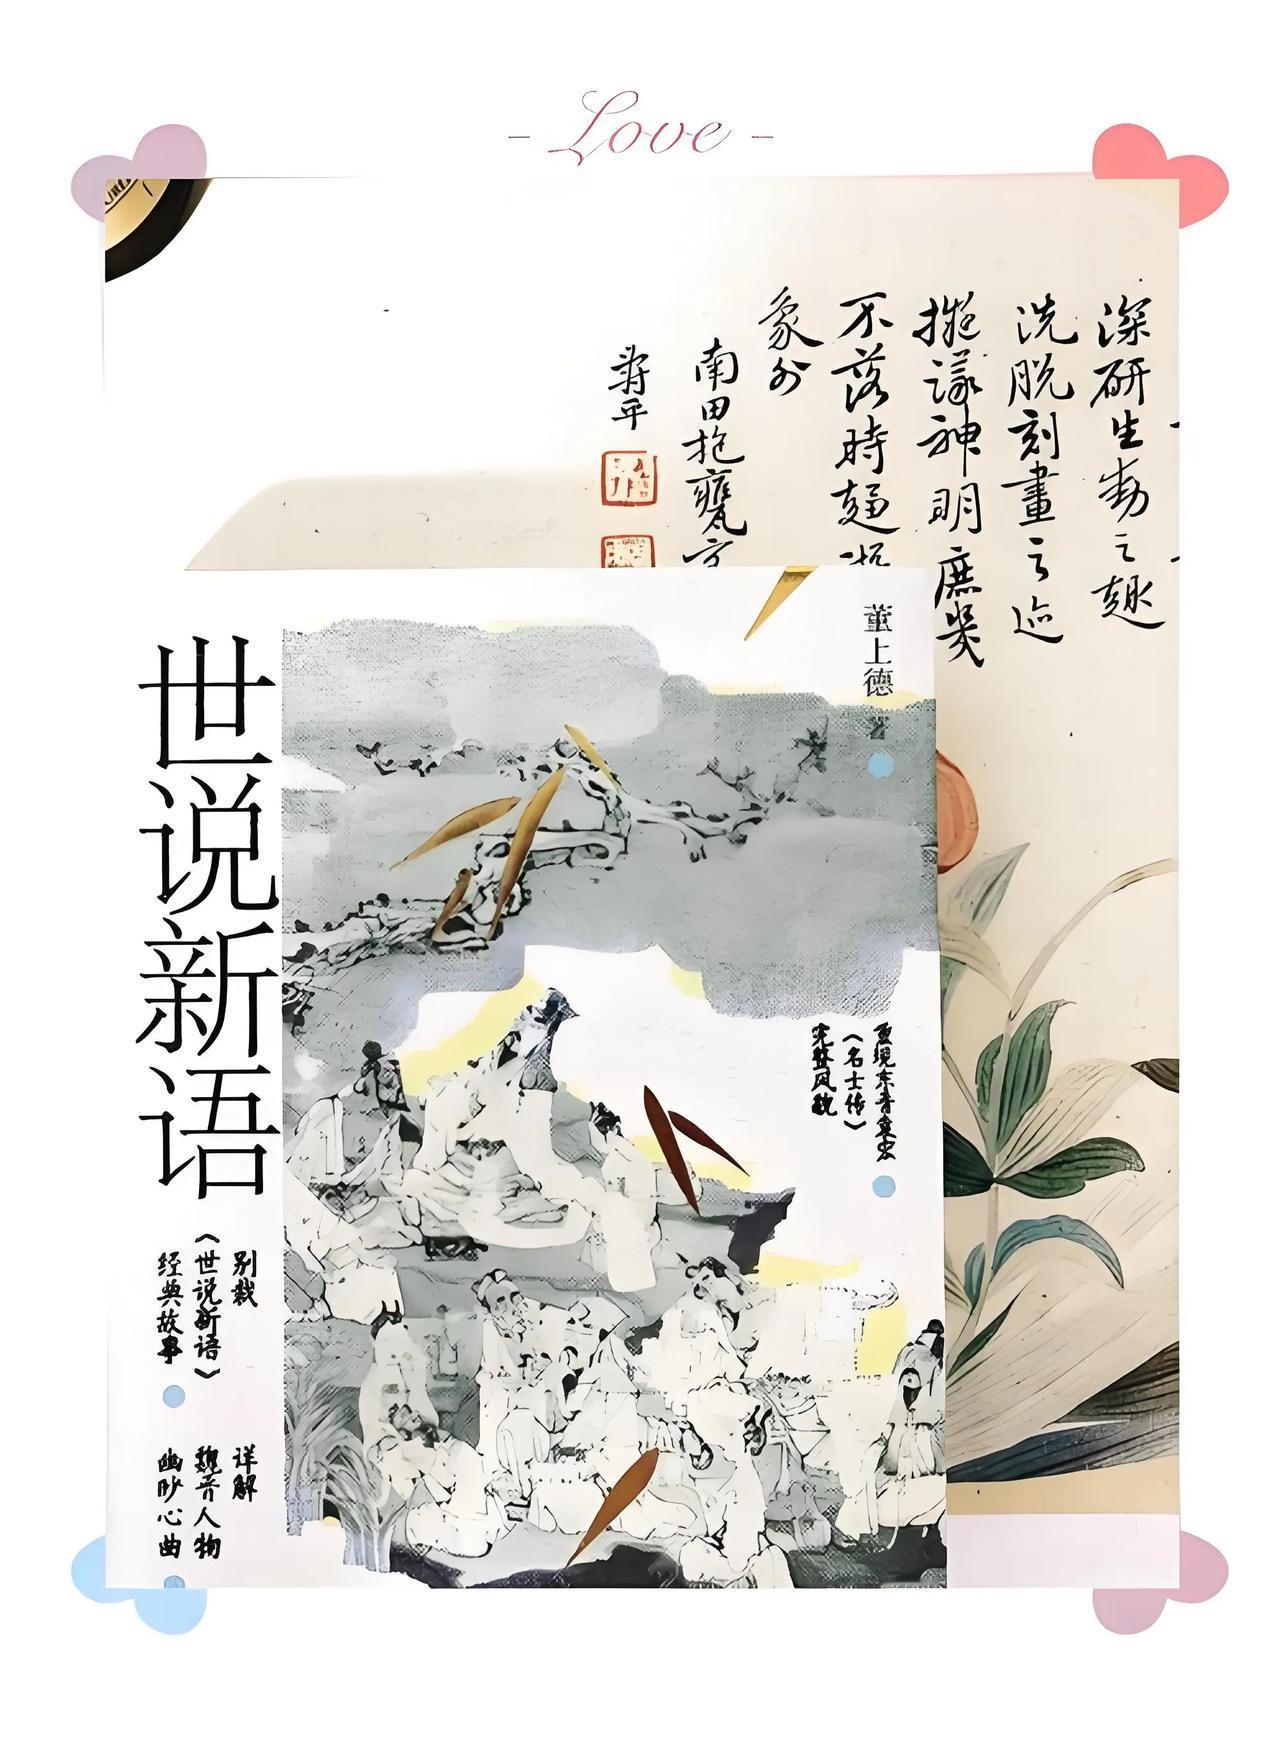 - Love -
深研生動之趣
洗脱刻畫之迹
擬議神明庶幾
不落時趨
象外
南田抱甕
壽平
世说新语
董上德 著
重现东晋袁宏
《名士传》
完整风貌
别裁
《世说新语》
经典故事
详解
魏晋人物
幽眇心曲